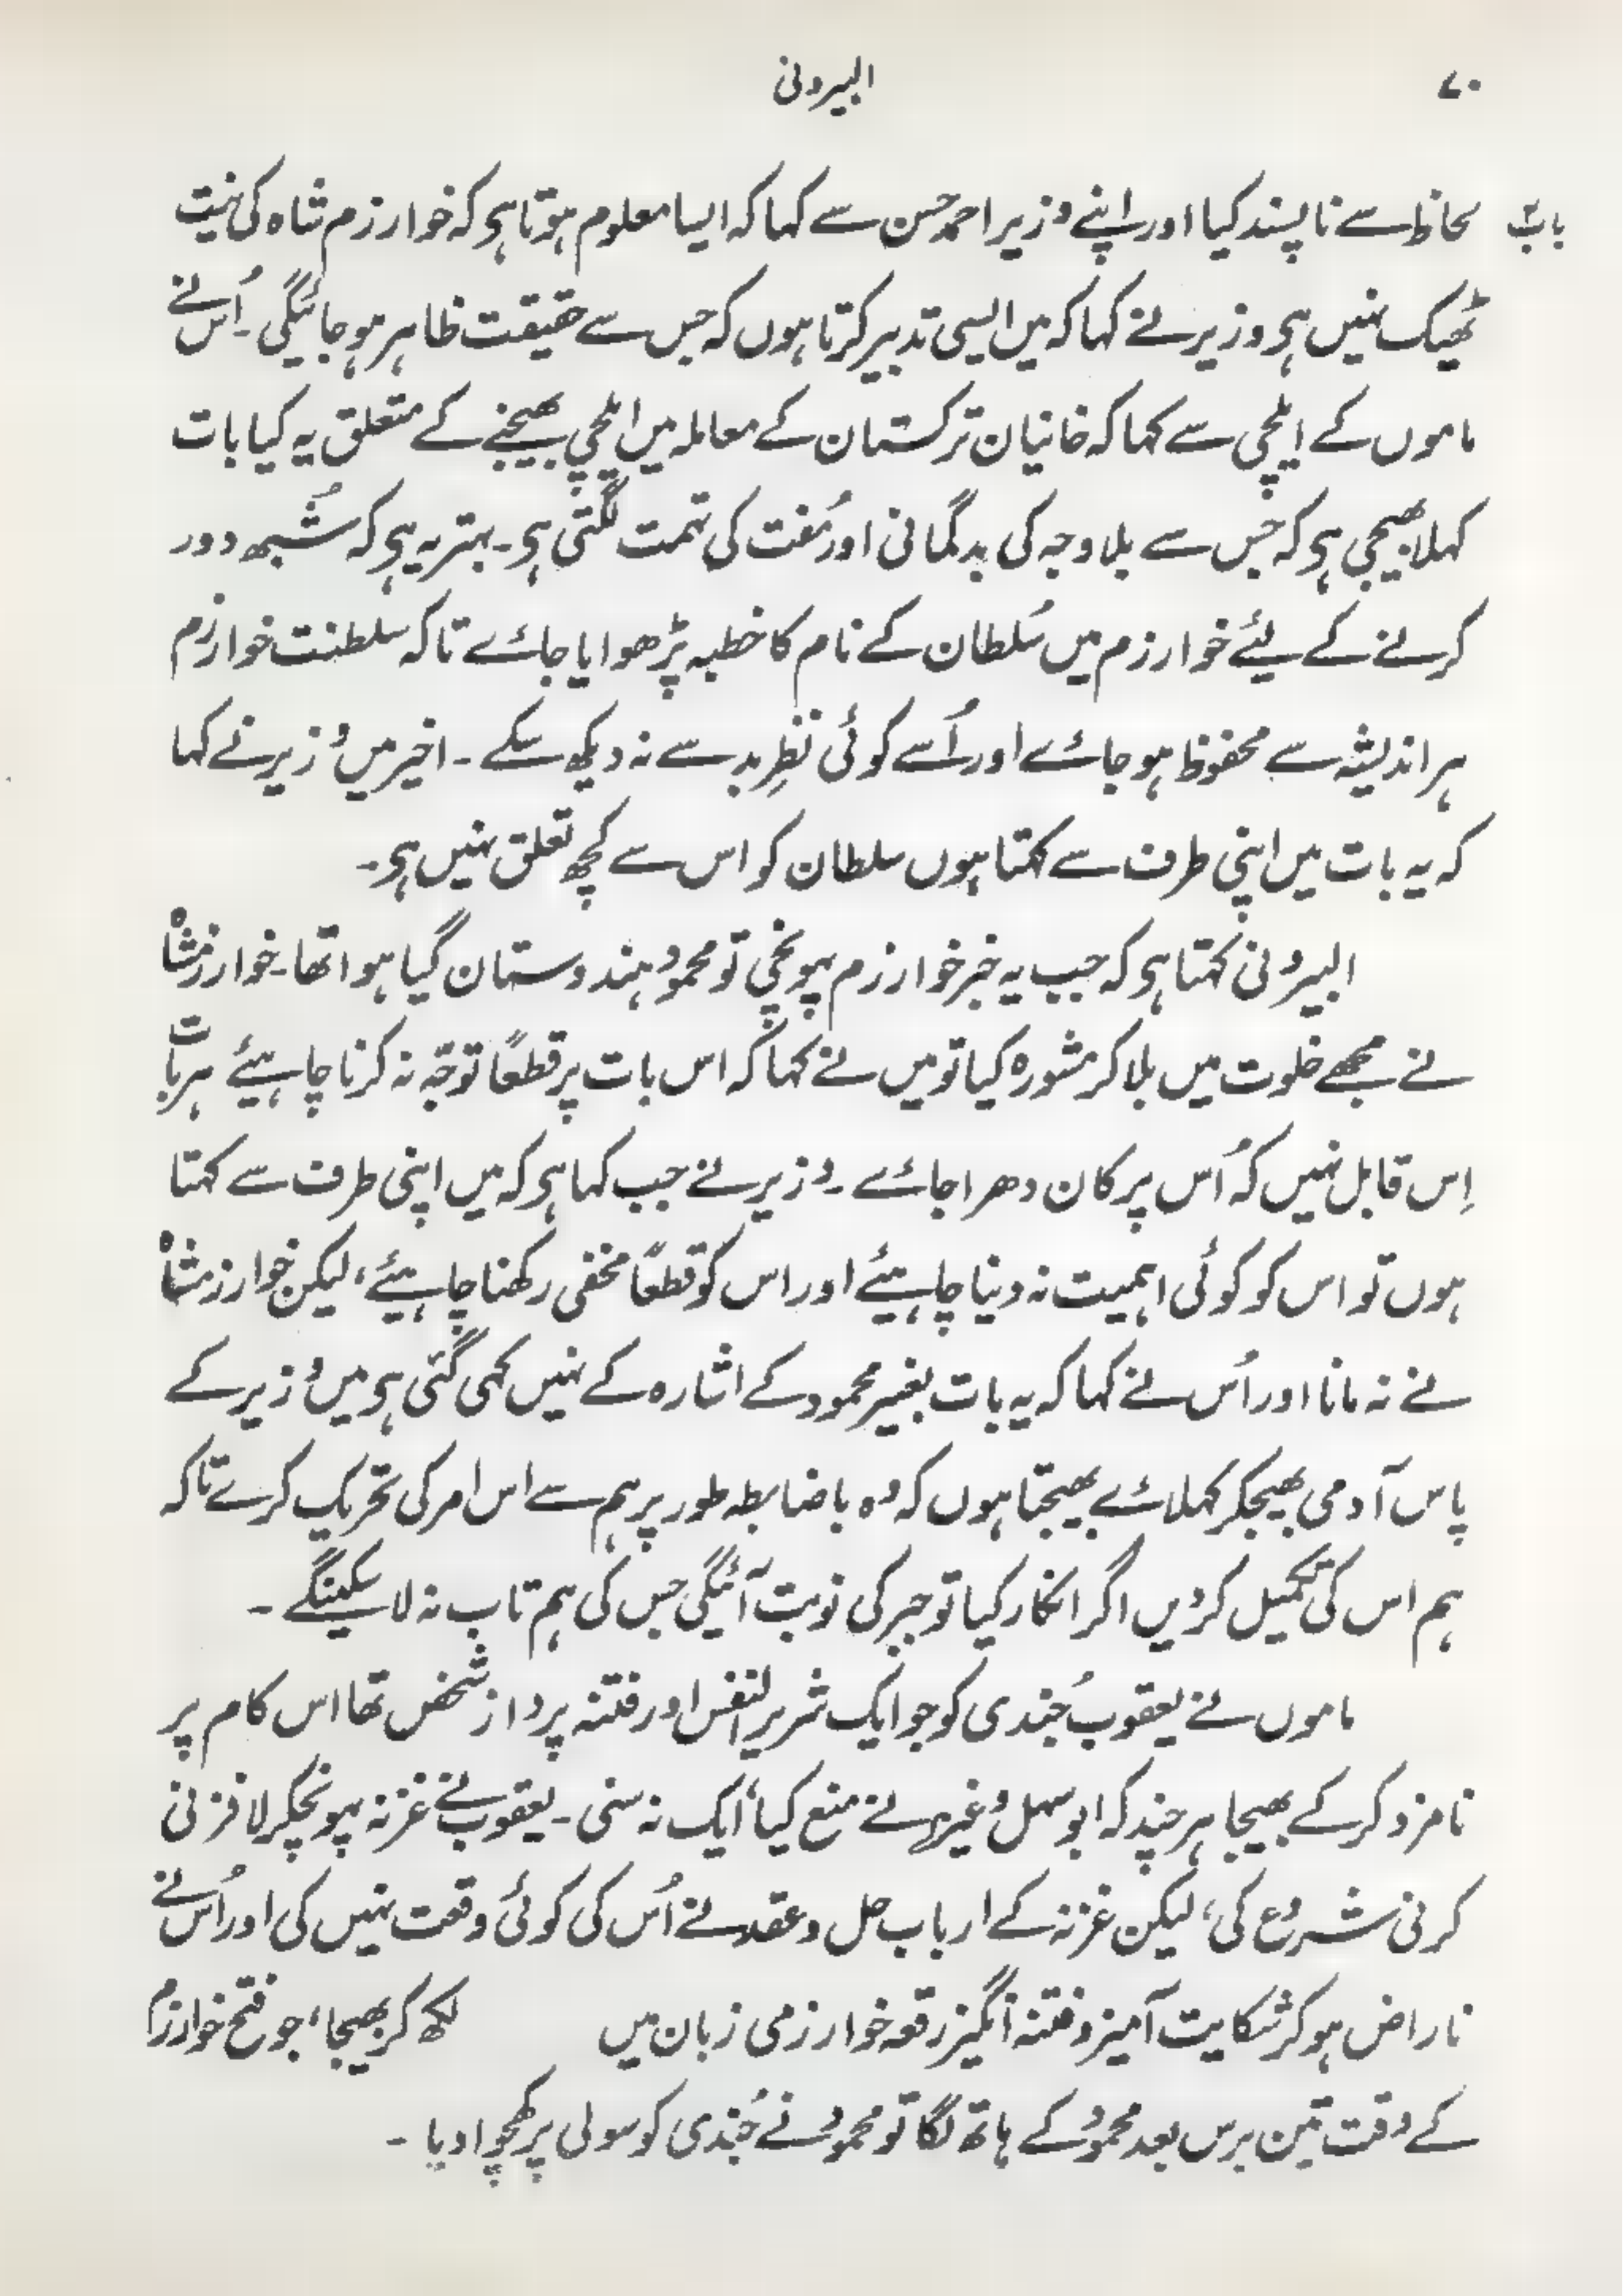 ۷۰
البیرونی
باب
لحاظ سے ناپسند کیا اور اپنے وزیر احمد حسن سے کہا کہ ایسا معلوم ہوتا ہی کہ خوارزم شاہ کی نیت
ٹھیک نہیں ہی وزیر نے کہا کہ میں ایسی تدبیر کرتا ہوں کہ جس سے حقیقت ظاہر ہو جائیگی۔ اُس نے
ماموں کے ایلچی سے کہا کہ خانیان ترکستان کے معاملہ میں ایلچی بھیجنے کے متعلق یہ کیا بات
کہلا بھیجی ہی کہ جس سے بلا وجہ کی بدگمانی اور مُفت کی تہمت لگتی ہی۔ بہتر یہ ہی کہ شُبھہ دور
کرنے کے لیئے خوارزم میں سُلطان کے نام کا خطبہ پڑھوایا جائے تاکہ سلطنت خوارزم
ہر اندیشہ سے محفوظ ہو جائے اور اُسے کوئی نظرِ بد سے نہ دیکھ سکے۔ اخیر میں وزیر نے کہا
کہ یہ بات میں اپنی طرف سے کہتا ہوں سلطان کو اس سے کچھ تعلق نہیں ہی۔
البیرونی کہتا ہی کہ جب یہ خبر خوارزم پہونچی تو محمود ہندوستان گیا ہوا تھا۔ خوارزمشاہ
نے مجھے خلوت میں بلا کر مشورہ کیا تو میں نے کہا کہ اس بات پر قطعًا توجّہ نہ کرنا چاہیئے ہر بات
اِس قابل نہیں کہ اُس پر کان دھرا جائے۔ وزیر نے جب کہا ہی کہ میں اپنی طرف سے کہتا
ہوں تو اس کو کوئی اہمیت نہ دینا چاہیئے اور اس کو قطعًا مخفی رکھنا چاہیئے، لیکن خوارزمشاہ
نے نہ مانا اور اُس نے کہا کہ یہ بات بغیر محمود کے اشارہ کے نہیں کہی گئی ہی میں وزیر کے
پاس آدمی بھیجکر کہلائے بھیجتا ہوں کہ وہ باضابطہ طور پر ہم سے اس امر کی تحریک کرے تاکہ
ہم اس کی تکمیل کر دیں اگر انکار کیا تو جبر کی نوبت آئیگی جس کی ہم تاب نہ لا سکینگے۔
ماموں نے یعقوب جُندی کو جو ایک شریر النفس اور فتنہ پرداز شخص تھا اس کام پر
نامزد کر کے بھیجا ہر چند کہ ابو سہل وغیرہ نے منع کیا، ایک نہ سنی۔ یعقوب نے غزنہ پہونچکر لافزنی
کرنی شروع کی، لیکن غزنہ کے ارباب حل و عقد نے اُس کی کوئی وقعت نہیں کی اور اُس نے
ناراض ہو کر شکایت آمیز و فتنہ انگیز رقعہ خوارزمی زبان میں لکھ کر بھیجا، جو فتح خوارزم
کے وقت تین برس بعد محمود کے ہاتھ لگا تو محمود نے جُندی کو سولی پر کھچوا دیا۔